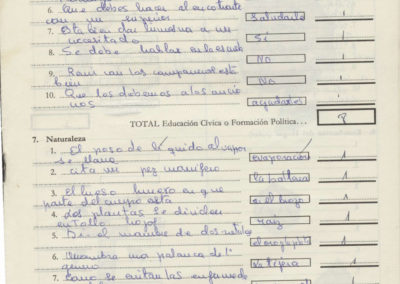 6. Que debes hacer al encontrarte
con un enfermo saludarle 1
7. Esta bien dar limosna a un
necesitado Si 1
8. Se debe hablar en la escuela
No 1
9. con los companeros esta
bien No 1
10. Que los debemos a los ancia
nos ayudarles 1
TOTAL Educación Cívica o Formación Política...
7. Naturaleza
1. El paso de liquido al vapor
se llama evaporacion 1
2. cita un pez mamifero
la ballena 1
3. El hueso humero en que
parte del cuerpo esta en el brazo 1
4. Las plantas se dividen
en tallo hojas raiz 1
5. Di el nombre de dos
1
6. Nombra una palanca de 1º
genero la tijera 1
7. Como se evitan las enfermeda
1